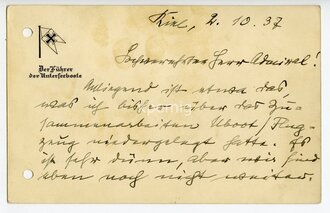 Kiel, 2. 10. 37
Der Führer
der Unterseeboote
Hochverehrter Herr Admiral!
Anliegend ist etwa das,
was ich bisher über das Zu-
sammenarbeiten Uboot/Flug-
zeug niedergelegt hatte. Es
ist sehr dünn, aber wir sind
eben noch nicht weiter.